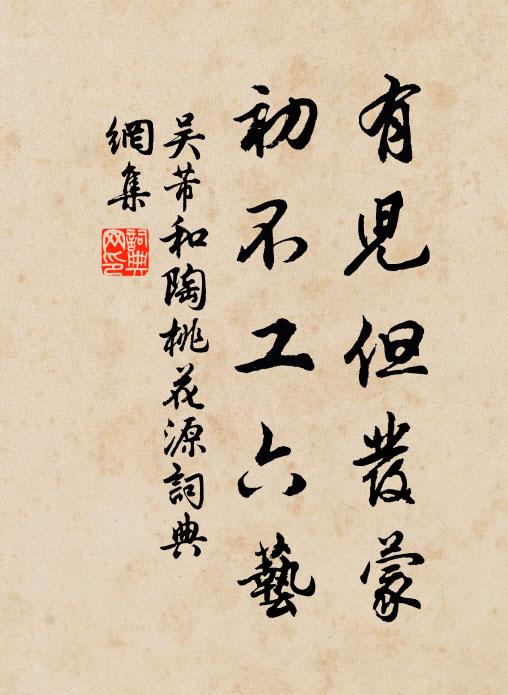 有兒但發蒙
初不工六藝
吴芾和陶桃花源詞典
網集
詞典
网印